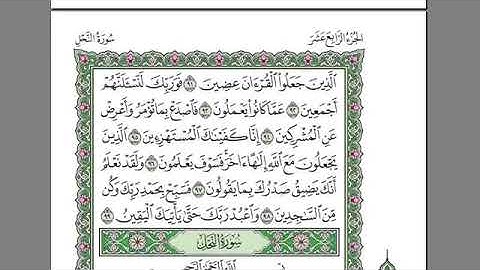 الجزء الرابع عشر
سورة النحل
ٱلَّذِينَ جَعَلُوا۟ ٱلْقُرْءَانَ عِضِينَ ٩١ فَوَرَبِّكَ لَنَسْـَٔلَنَّهُمْ
أَجْمَعِينَ ٩٢ عَمَّا كَانُوا۟ يَعْمَلُونَ ٩٣ فَٱصْدَعْ بِمَا تُؤْمَرُ وَأَعْرِضْ
عَنِ ٱلْمُشْرِكِينَ ٩٤ إِنَّا كَفَيْنَٰكَ ٱلْمُسْتَهْزِءِينَ ٩٥ ٱلَّذِينَ
يَجْعَلُونَ مَعَ ٱللَّهِ إِلَٰهًا ءَاخَرَ فَسَوْفَ يَعْلَمُونَ ٩٦ وَلَقَدْ نَعْلَمُ
أَنَّكَ يَضِيقُ صَدْرُكَ بِمَا يَقُولُونَ ٩٧ فَسَبِّحْ بِحَمْدِ رَبِّكَ وَكُن
مِّنَ ٱلسَّٰجِدِينَ ٩٨ وَٱعْبُدْ رَبَّكَ حَتَّىٰ يَأْتِيَكَ ٱلْيَقِينُ ٩٩
سُورَةُ النَّحْلِ